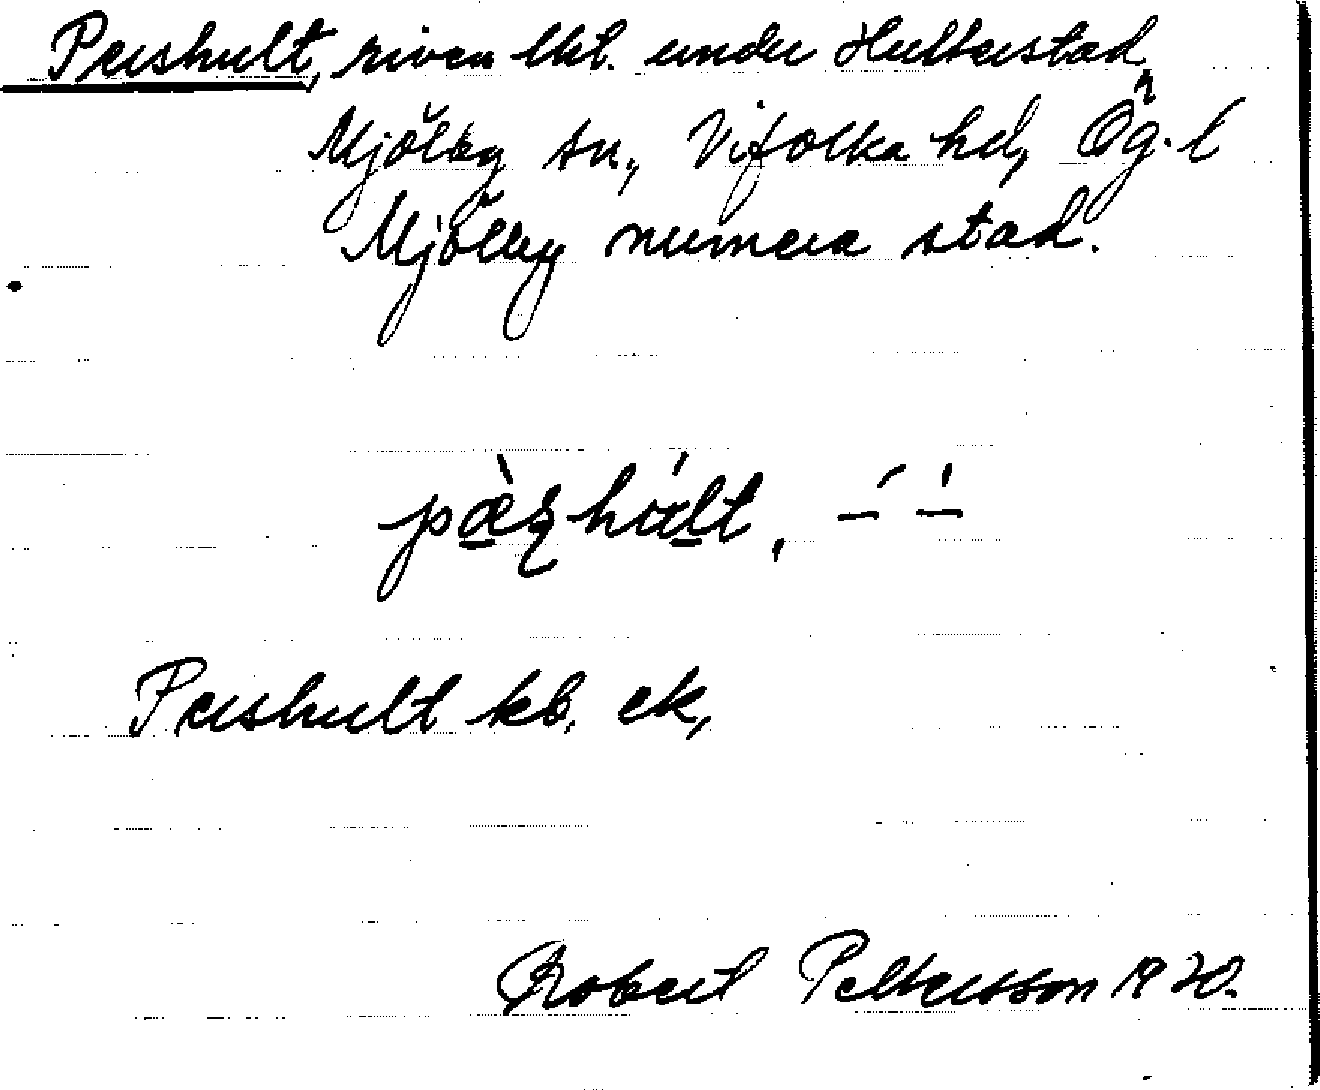 Pershult, riven lht. under Hulterstad
Mjölby sn., Vifolka hd, Ög. l
Mjölby numera stad.
pæ̀ʂhúlt, –́ –̀
Pershult kb. ek,
Robert Pettersson 1920.